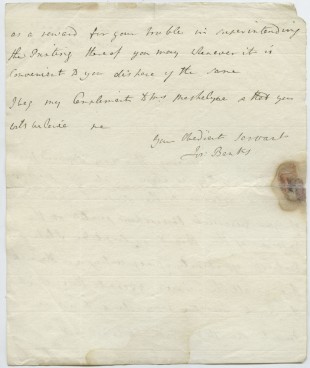 as a reward for your trouble in superintending
the Printing thereof you may whenever it is
Convenient to you dispose of the same
I beg my Compliments to Mrs Maskelyne & that you
will believe me
Your Obedient Servant
Jos: Banks